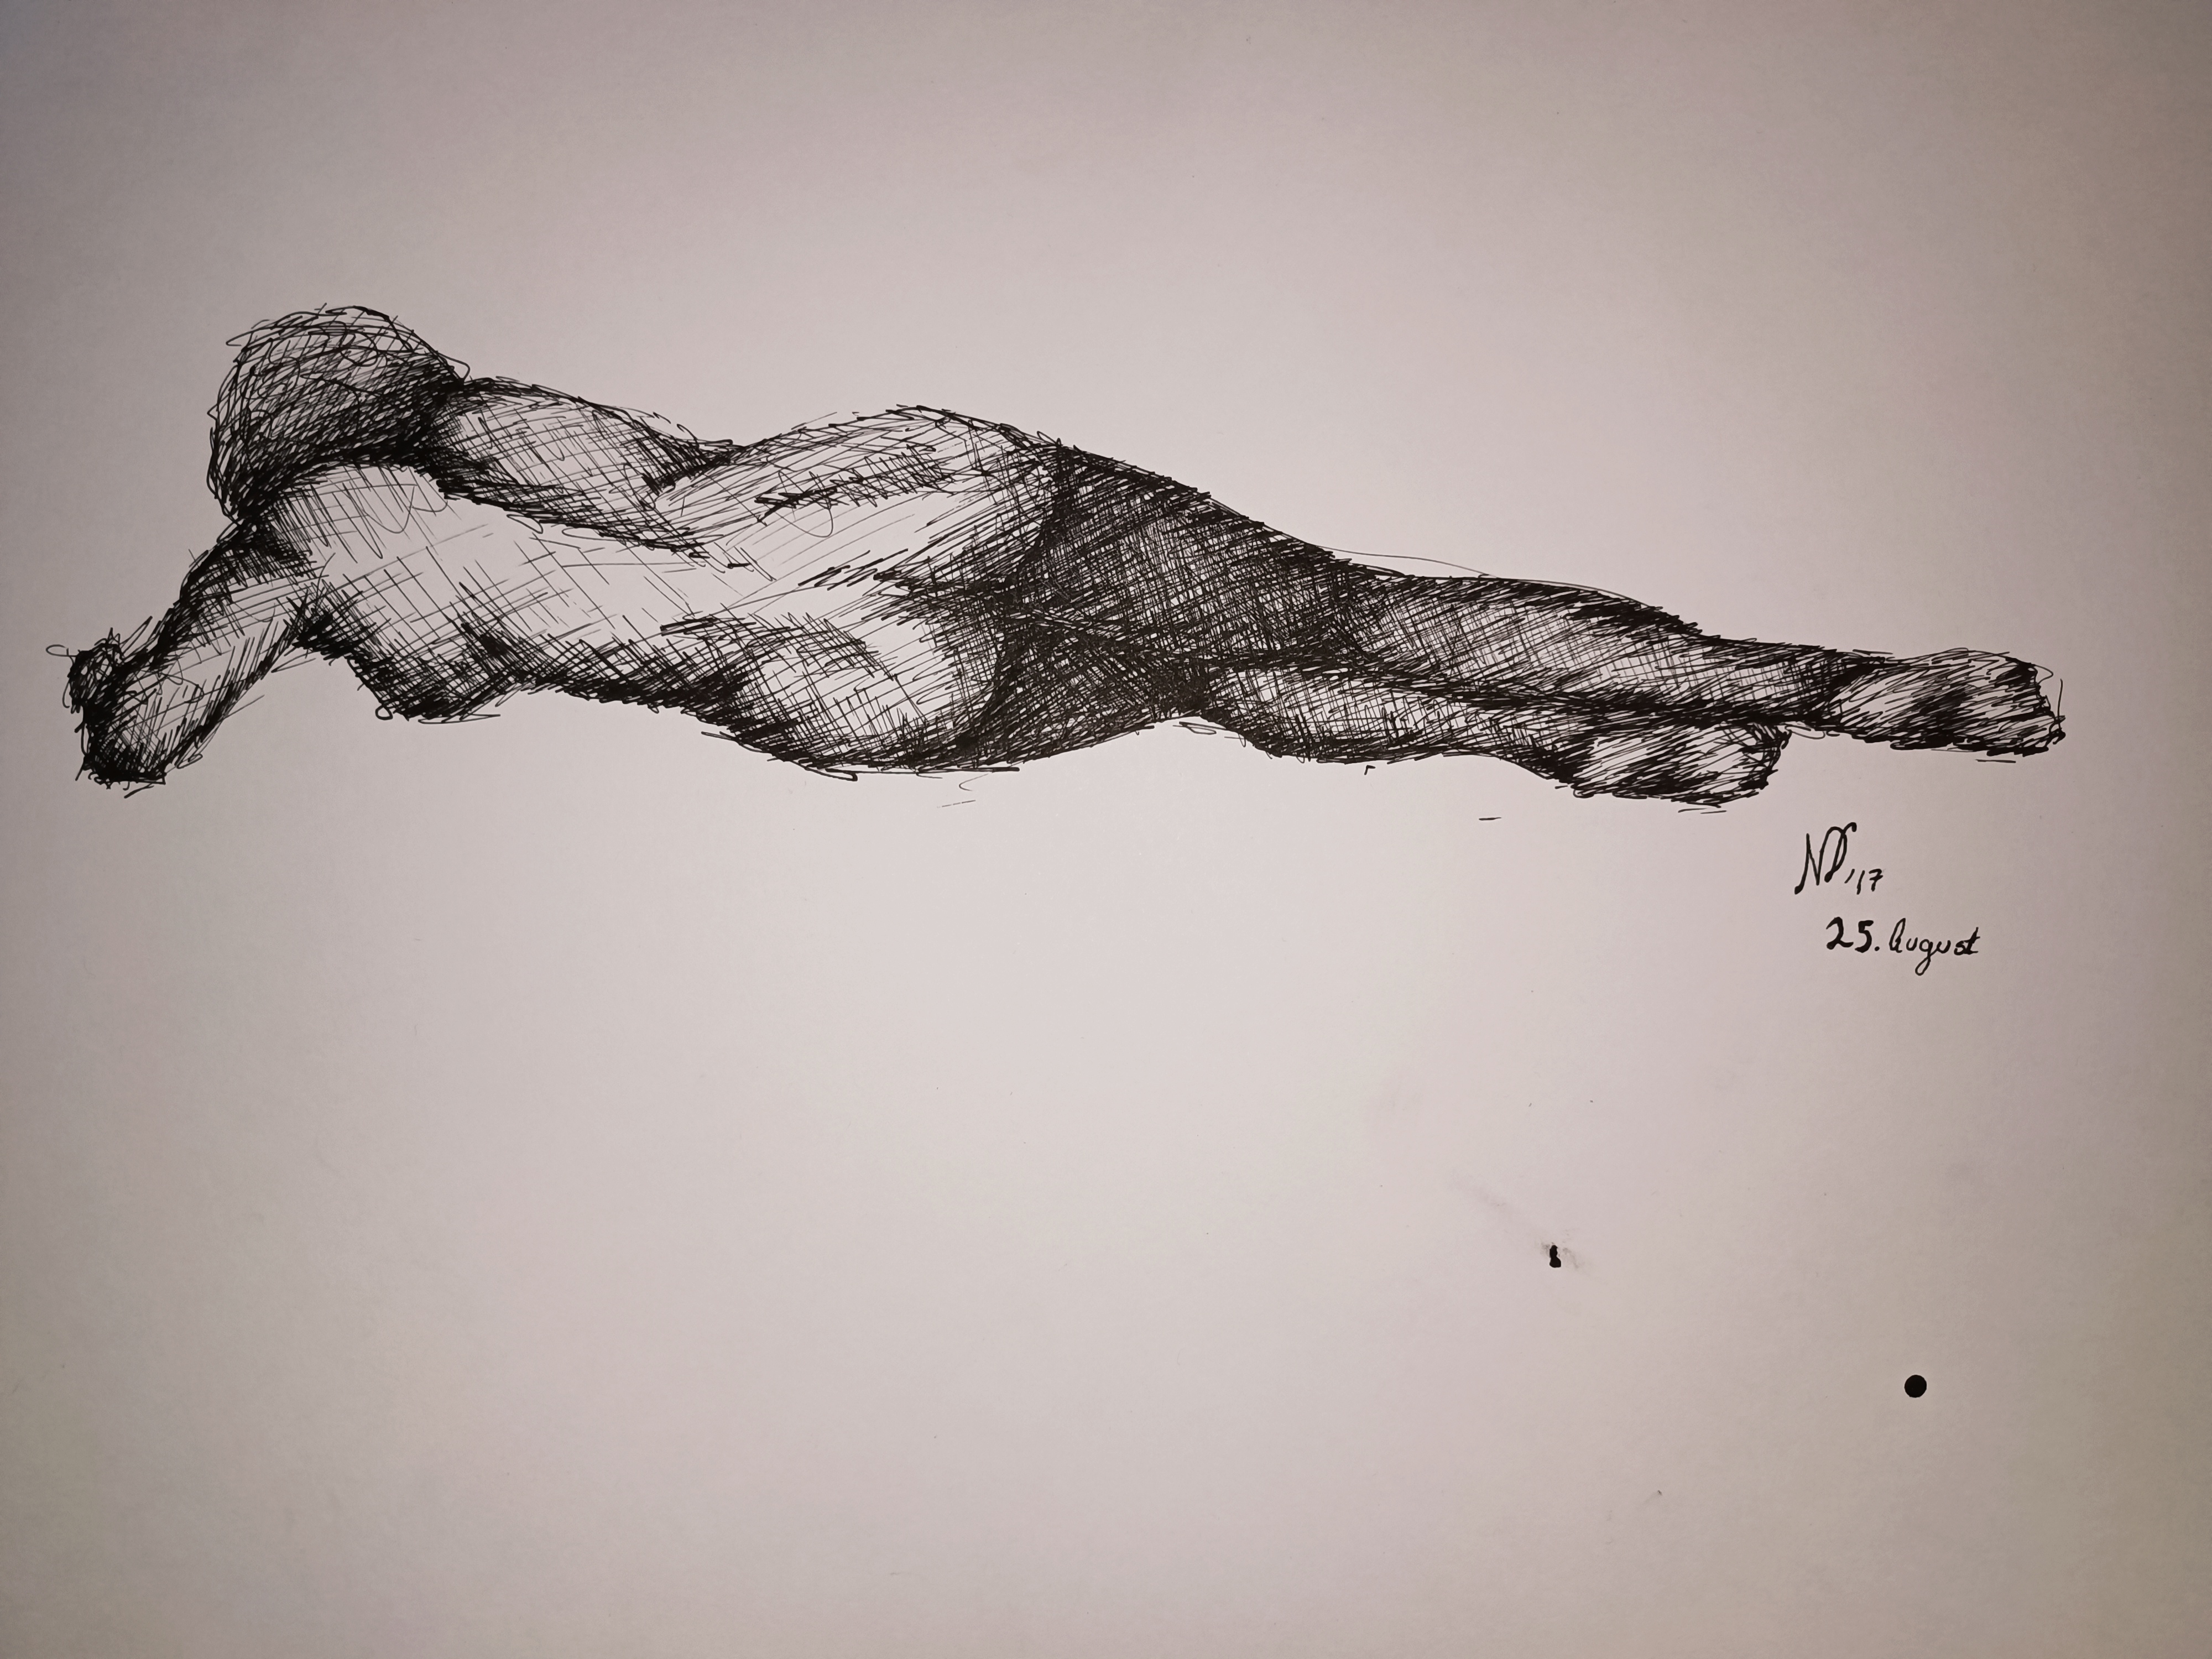 ND '17
25. August